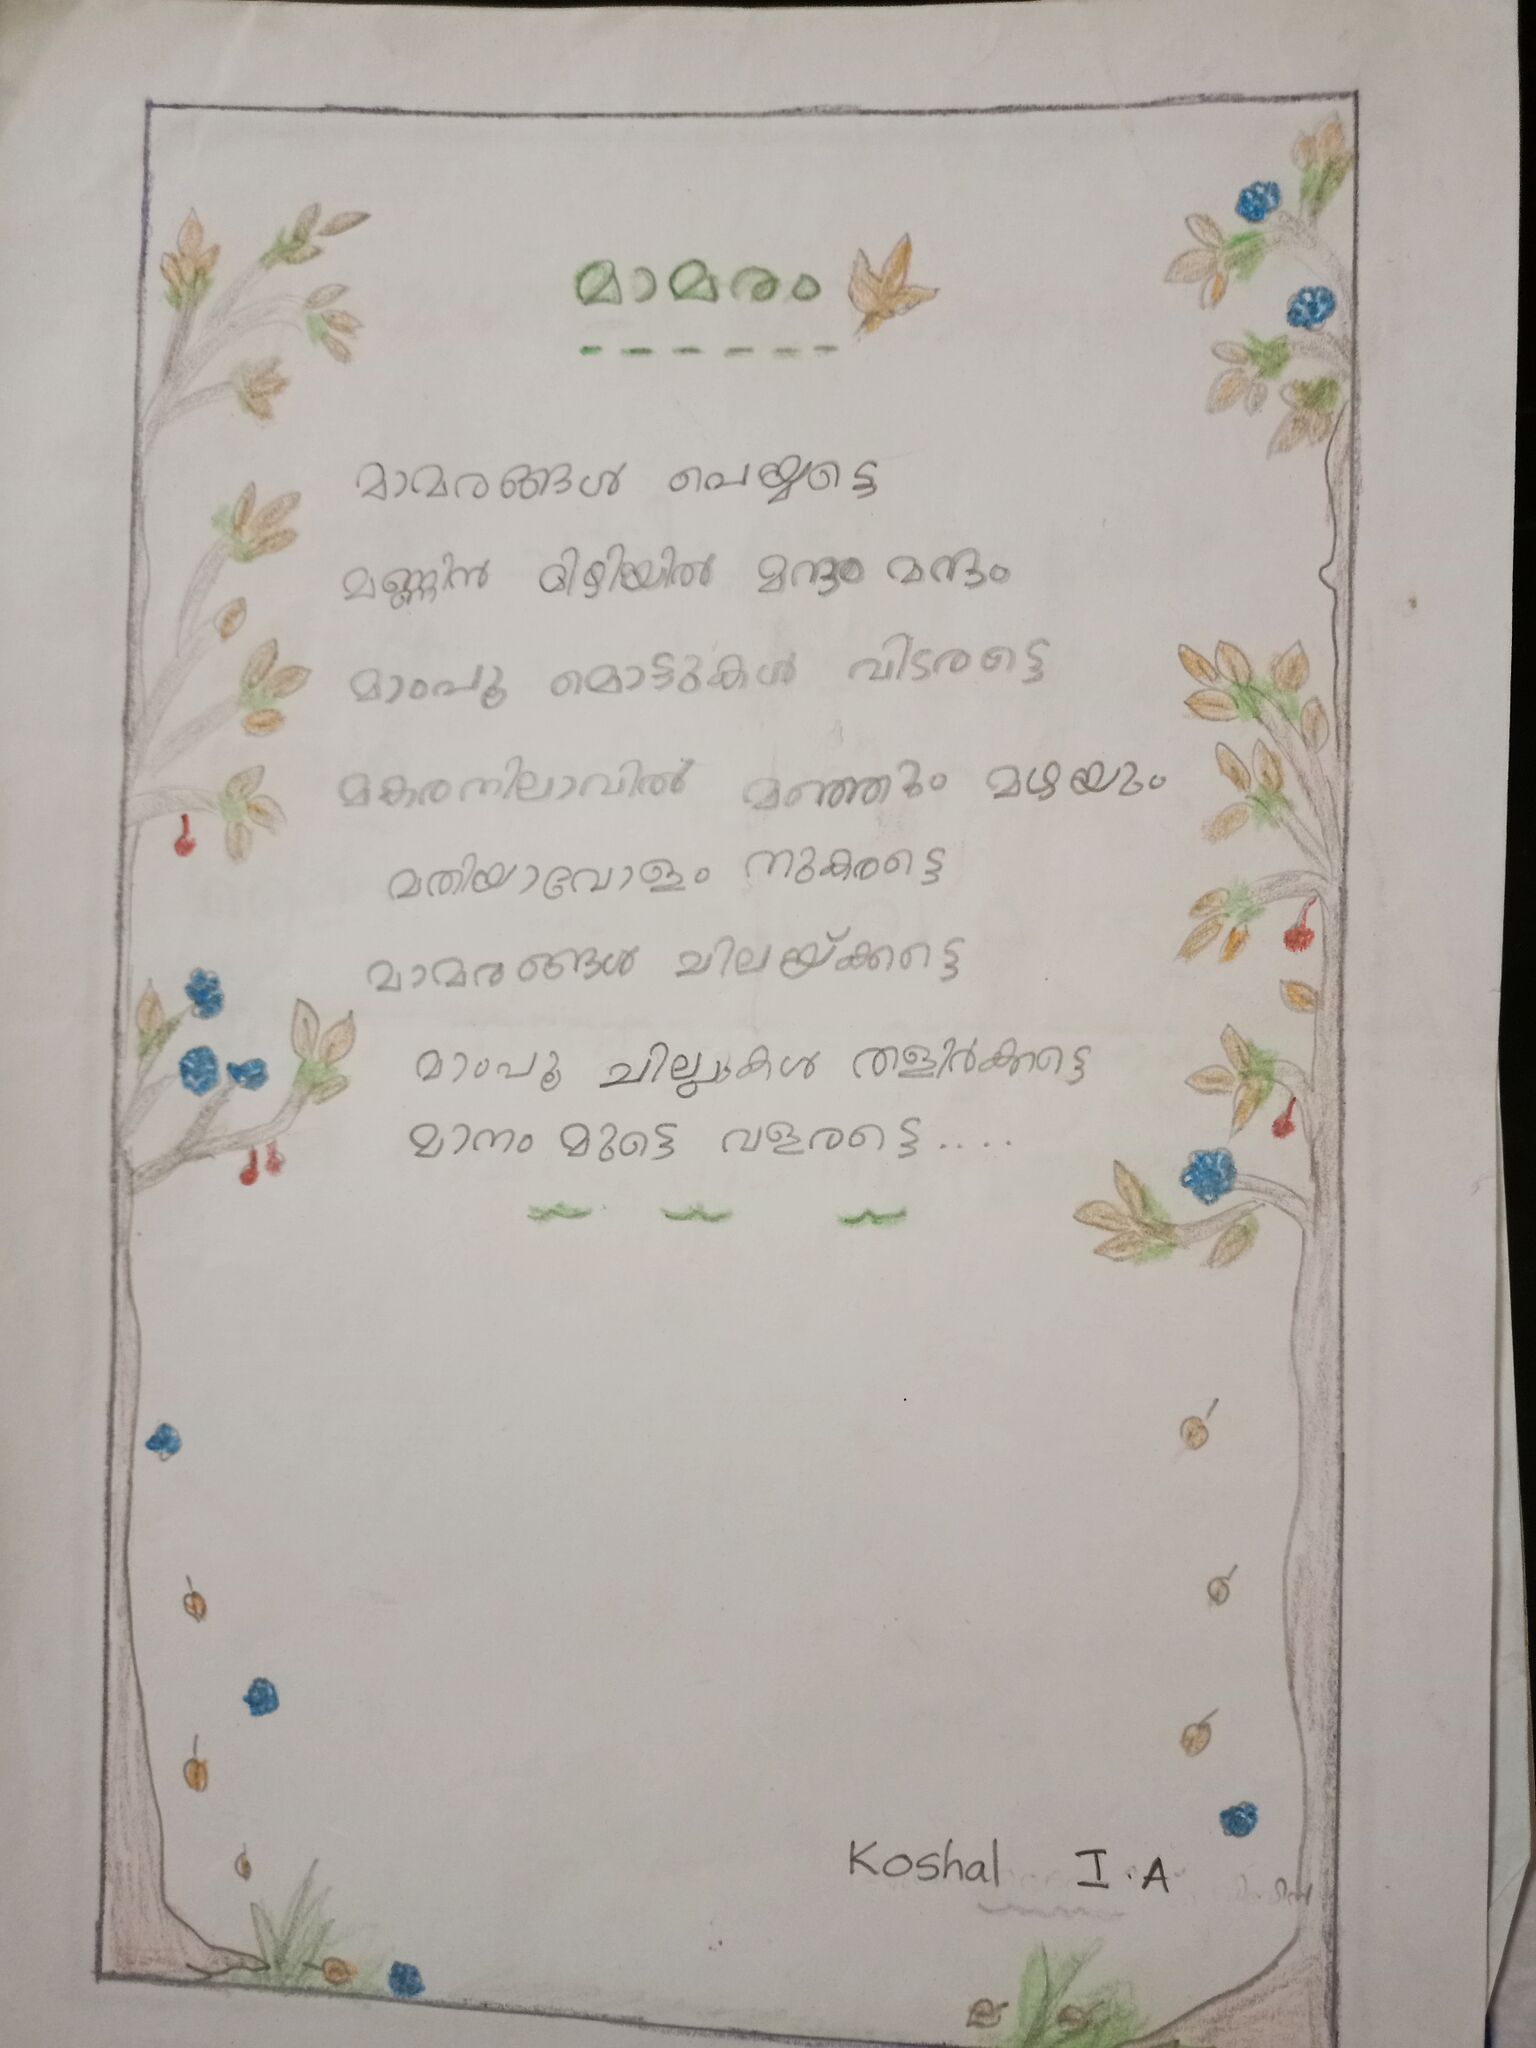 മാമരം
മാമരങ്ങൾ പെയ്യട്ടെ
മണ്ണിൻ മിഴിയിൽ മന്ദം മന്ദം
മാംപൂ മൊട്ടുകൾ വിടരട്ടെ
മകരനിലാവിൽ മഞ്ഞും മഴയും
മതിയാവോളം നുകരട്ടെ
മാമരങ്ങൾ ചിലയ്ക്കട്ടെ
മാംപൂ ചില്ലകൾ തളിർക്കട്ടെ
മാനം മുട്ടെ വളരട്ടെ....
Koshal I.A